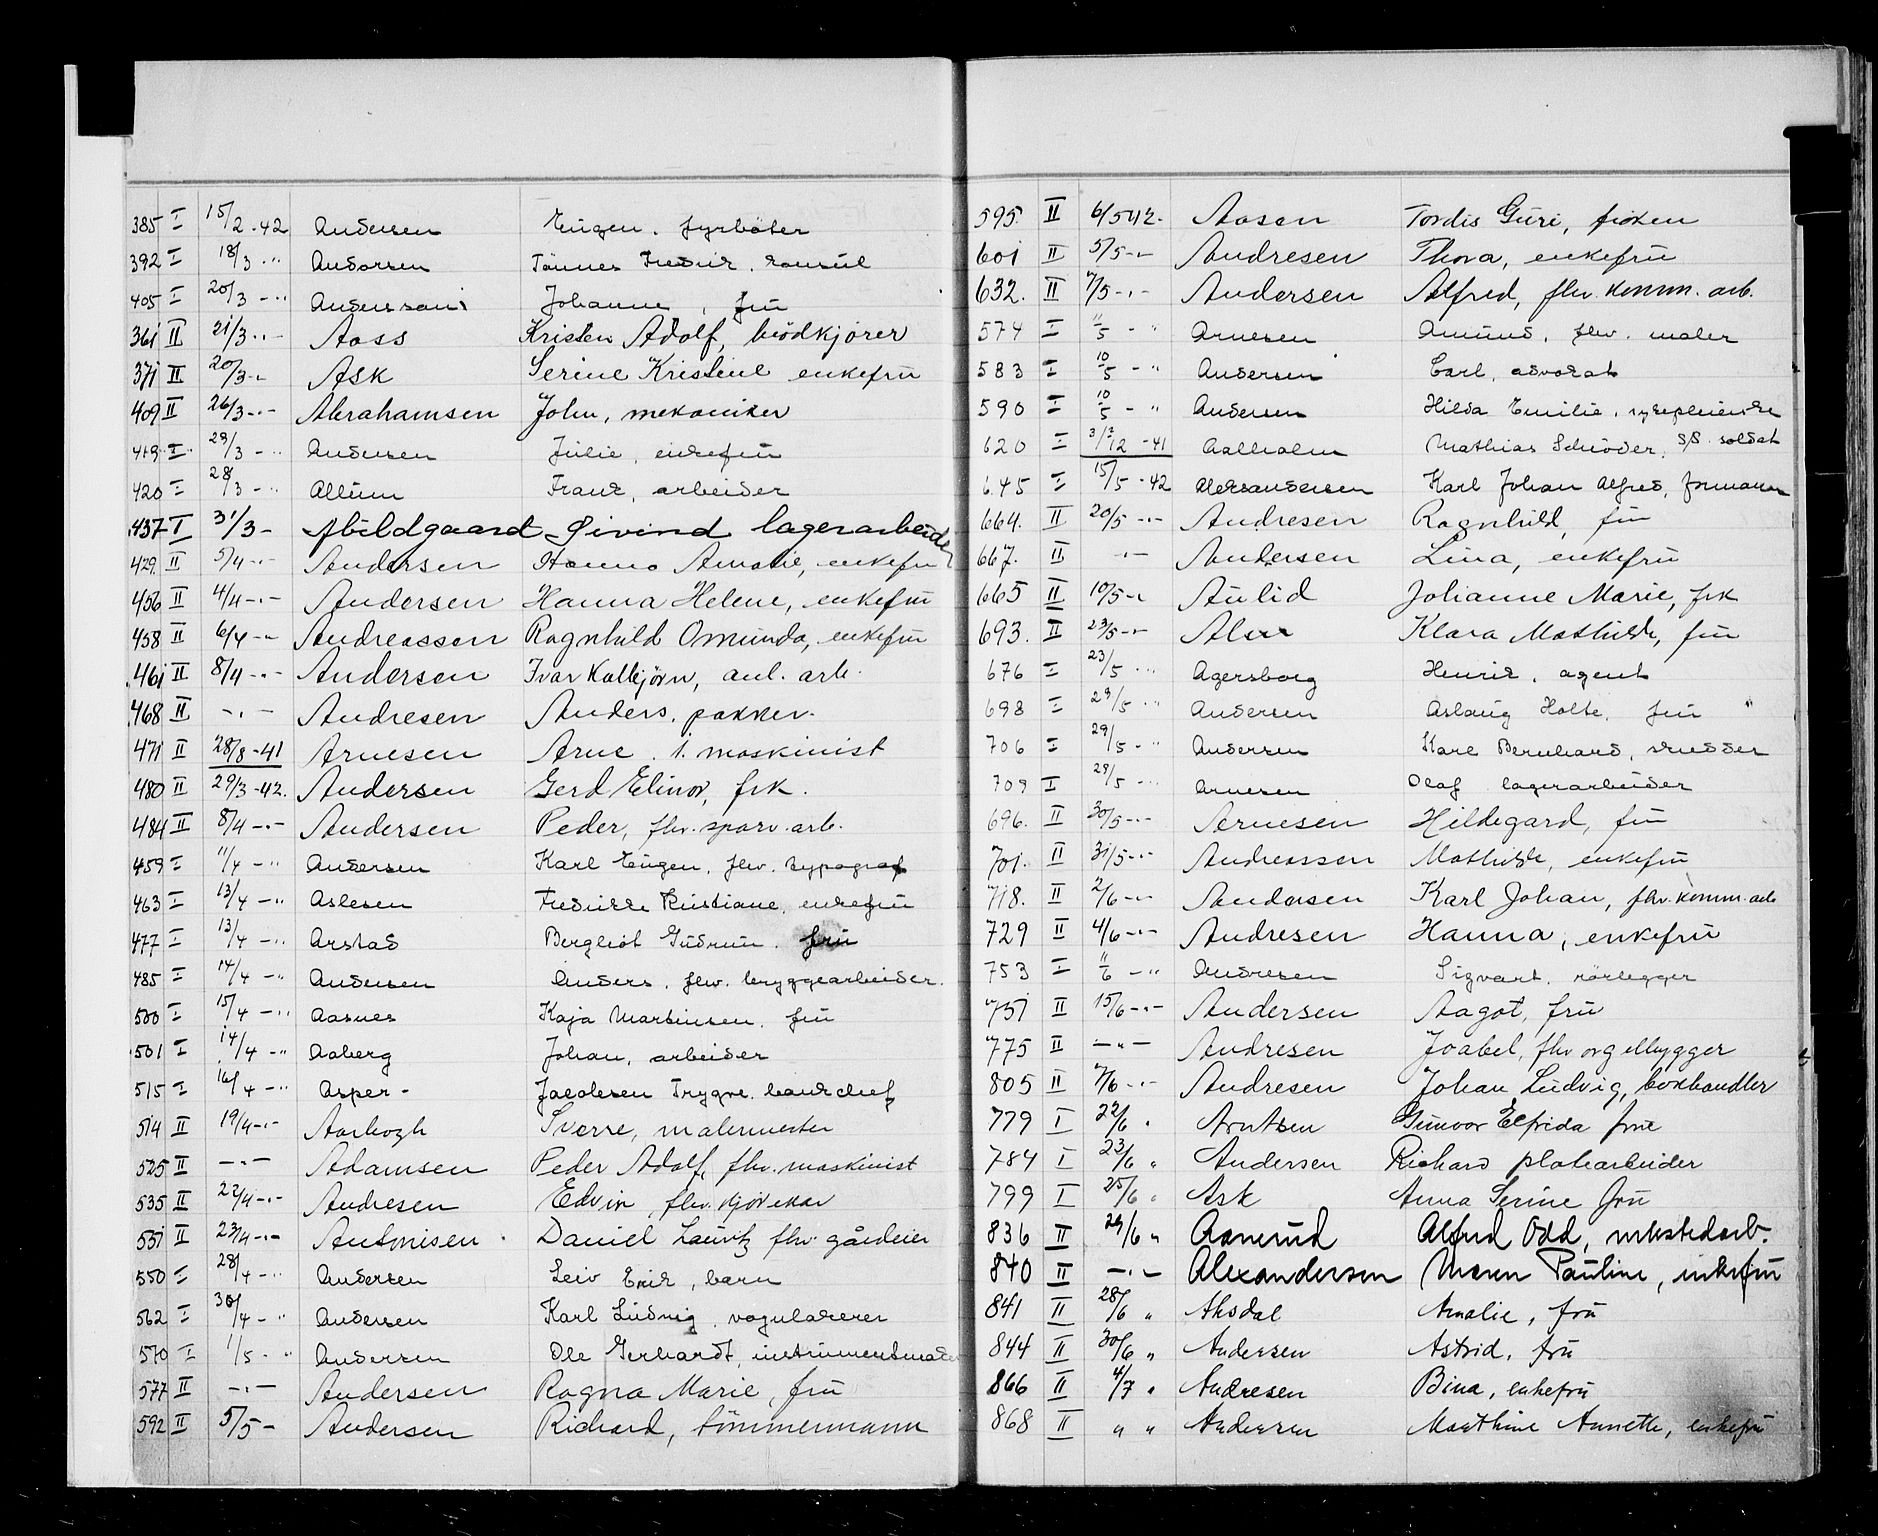 385 I 15/2 -42 Andersen Eugen, fyrböter
392 I 18/3 -"- Andersen Tönnes Fredrik, konsul
405 I 20/3 -"- Anderssen Johanne, fru
361 II 21/3 -"- Aass Kristen Adolf, brödkjörer
371 II 20/3 -"- Ask Serine Kristine enkefru
409 II 26/3 -"- Abrahamsen John, mekaniker
419 I 29/3 -"- Andersen Julie, enkefru
420 I 28/3 -"- Allum Frank, arbeider
437 I 31/3 - Abildgaard Øivind lagerarbeider
429. II 5/4 -"- Andersen Hanna Amalie, enkefru
456 II 4/4 -"- Andersen Hanna Helene, enkefru
458 II 6/4 -"- Andreassen Ragnhild Omunda, enkefru
461 II 8/4 -"- Andersen Ivar Kolbjörn, anl. arb.
468 II -"- Andresen Anders, pakker.
471 II 28/8 -41 Arnesen Arne, 1. maskinist
480 II 29/3 -42. Andersen Gerd Elinor, frk.
484 II 8/4 -"- Andersen Peder, fhv. sporv. arb.
459 I 11/4 -"- Andersen Karl Eugen, fhv. typograf
463 I 13/4 -"- Aslesen Fredrikke Kristiane, enkefru
477 I 13/4 -"- Arstad Bergliot Gudrun, fru
485 I 14/4 -"- Andersen Anders, fhv. bryggearbeider.
500 I 15/4 -"- Aasnes Kaja Martinsen, fru
501 I 14/4 -"- Aaberg Johan, arbeider
515 I 16/4 -"- Asper- Jacobsen Trygve, bankchef
514 II 19/4 -"- Aarhogh Sverre, malermester
525 II -"- Adamsen Peder Adolf, fhv. maskinist
535 II 22/4 -"- Andresen Edvin, fhv.
551 II 23/4 -"- Antonisen Daniel Lauritz fhv. gårdeier
550 I 28/4 -"- Andersen Leiv Erik, barn
562 I 30/4 -"- Andersen Karl Ludvig, vognlakerer
570 I 1/5 -" Andersen Ole Gerhardt, instrumentmaker
577 II -"- Andersen Ragna Marie, fru
592 II 5/5 - Andersen Richard, tömmermann
595. II 6/5 42. Aasen Tordis Guri, fröken
601 II 5/5 -"- Andresen Thora, enkefru
632. II 7/5 -"- Andersen Alfred, fhv. komm. arb.
574 I 11/5 -" Arnesen Amund, fhv. maler
583 I 10/5 -" Andersen Carl, advokat
590 I 10/5 -" Andersen Hilda Emilie, sykepleierske
620 I /12 -41 Aalholm Mathias Schröder, SS. soldat
645 I 15/5 -42 Aleksandersen Karl Johan Alfred, formann
664. II 20/5 -"- Andresen Ragnhild, fru
667. II -"- Andersen Lina, enkefru
665 II 10/5 -"- Aulid Johanne Marie, frk
693. II 23/5 -"- Klara Mathilde, fru
676 I 23/5 -"- Agersborg Henrik, agent
698 I 29/5 -"- Andersen Aslaug Holte, fru "
706 I 29/5 -" Andersen Karl Bernhard, skredder
709 I 29/5 -"- Arnesen Olaf lagerarbeider
696. II 30/5 -"- Arnesen Hildegard, fru
701. II 31/5 -"- Andreassen Mathilde, enkefru
718. II 2/6 -"- Andersen Karl Johan, fhv. komm. arb
729 II 4/6 -"- Andresen Hanna, enkefru
753 I 11/6 -" Andresen Sigvart, rörlegger
751 II 15/6 -"- Andersen Aagot, fru
775 II -"- Andresen Joabel, fhv orgelbygger
805 II 7/6 -"- Andresen Johan Ludvig, bokhandler
779 I 22/6 " Arntsen Gunvor Elfrida frue
784 I 23/6 " Andersen Richard platearbeider
799 I 25/6 " Ask Anna Serine fru
836 II 29/6 " Aamrud Alfred Odd, verkstedarb.
840 II -"- Alexandersen Maren Pauline, enkefru
841 II 28/6 " Aksdal Amalie, fru
844 II 30/6 " Andersen Astrid, fru
866 II 4/7 " Andresen Bina, enkefru
868 II " " Andersen Marthine Annette, enkefru